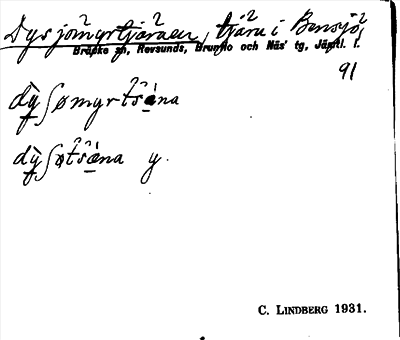 Dysjömyrtjärnen, tjärn i Bensjö,
Bräcke sn, Revsunds, Brunflo och Näs' tg, Jämtl. l.
91
dy̖ʃømyrt̂ŝæ̀na
dy̖ʃøt̂ŝæ̀na y.
C. LINDBERG 1931.